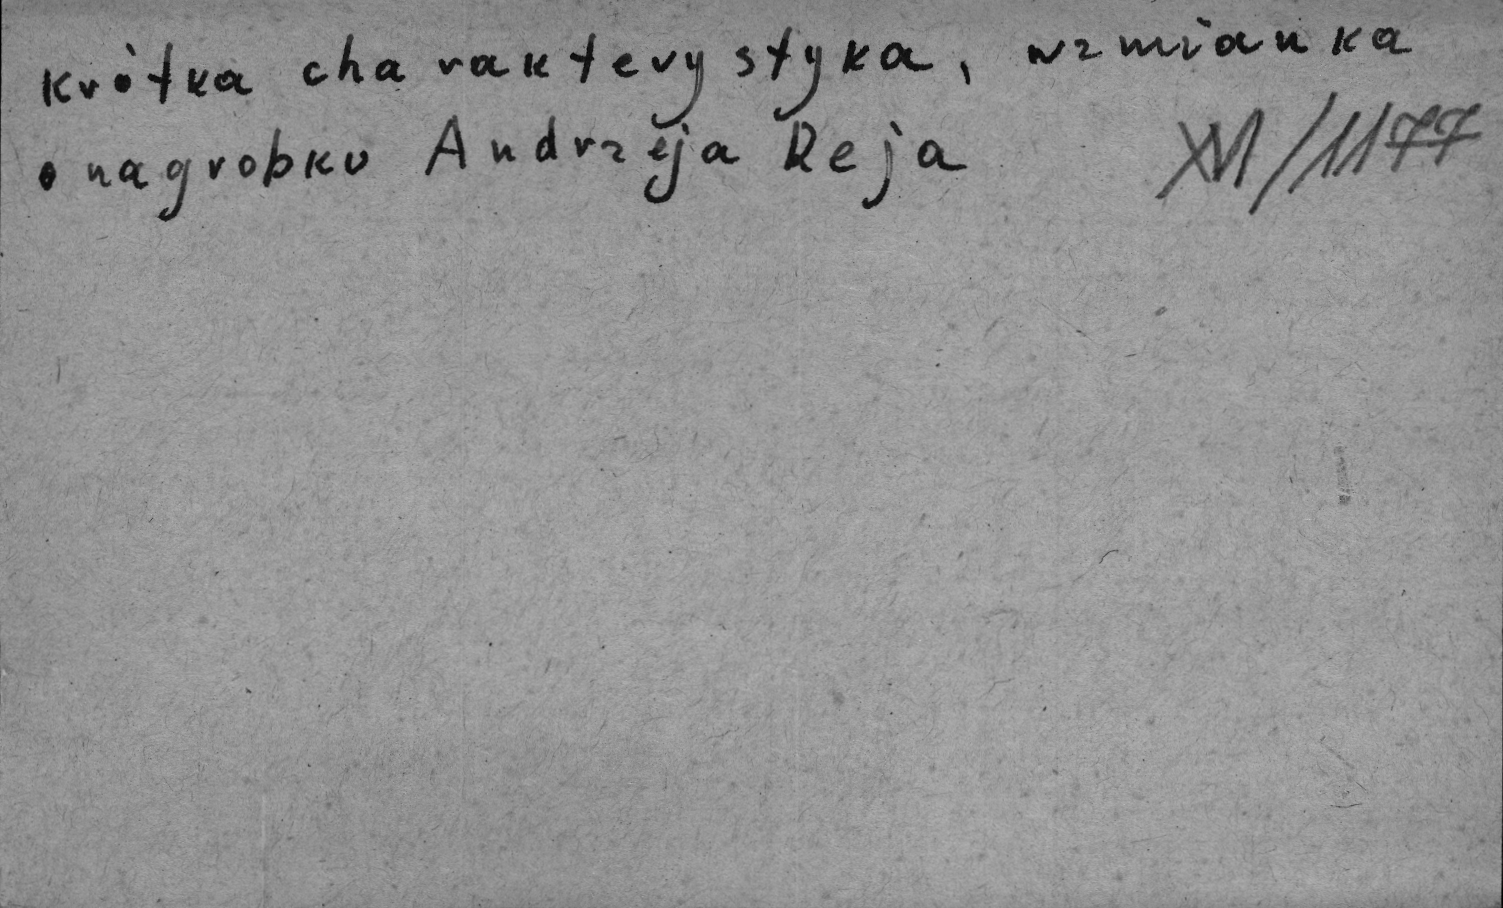 krótka charakterystyka, wzmianka
o nagrobku Andrzeja Reja
XVI/1177